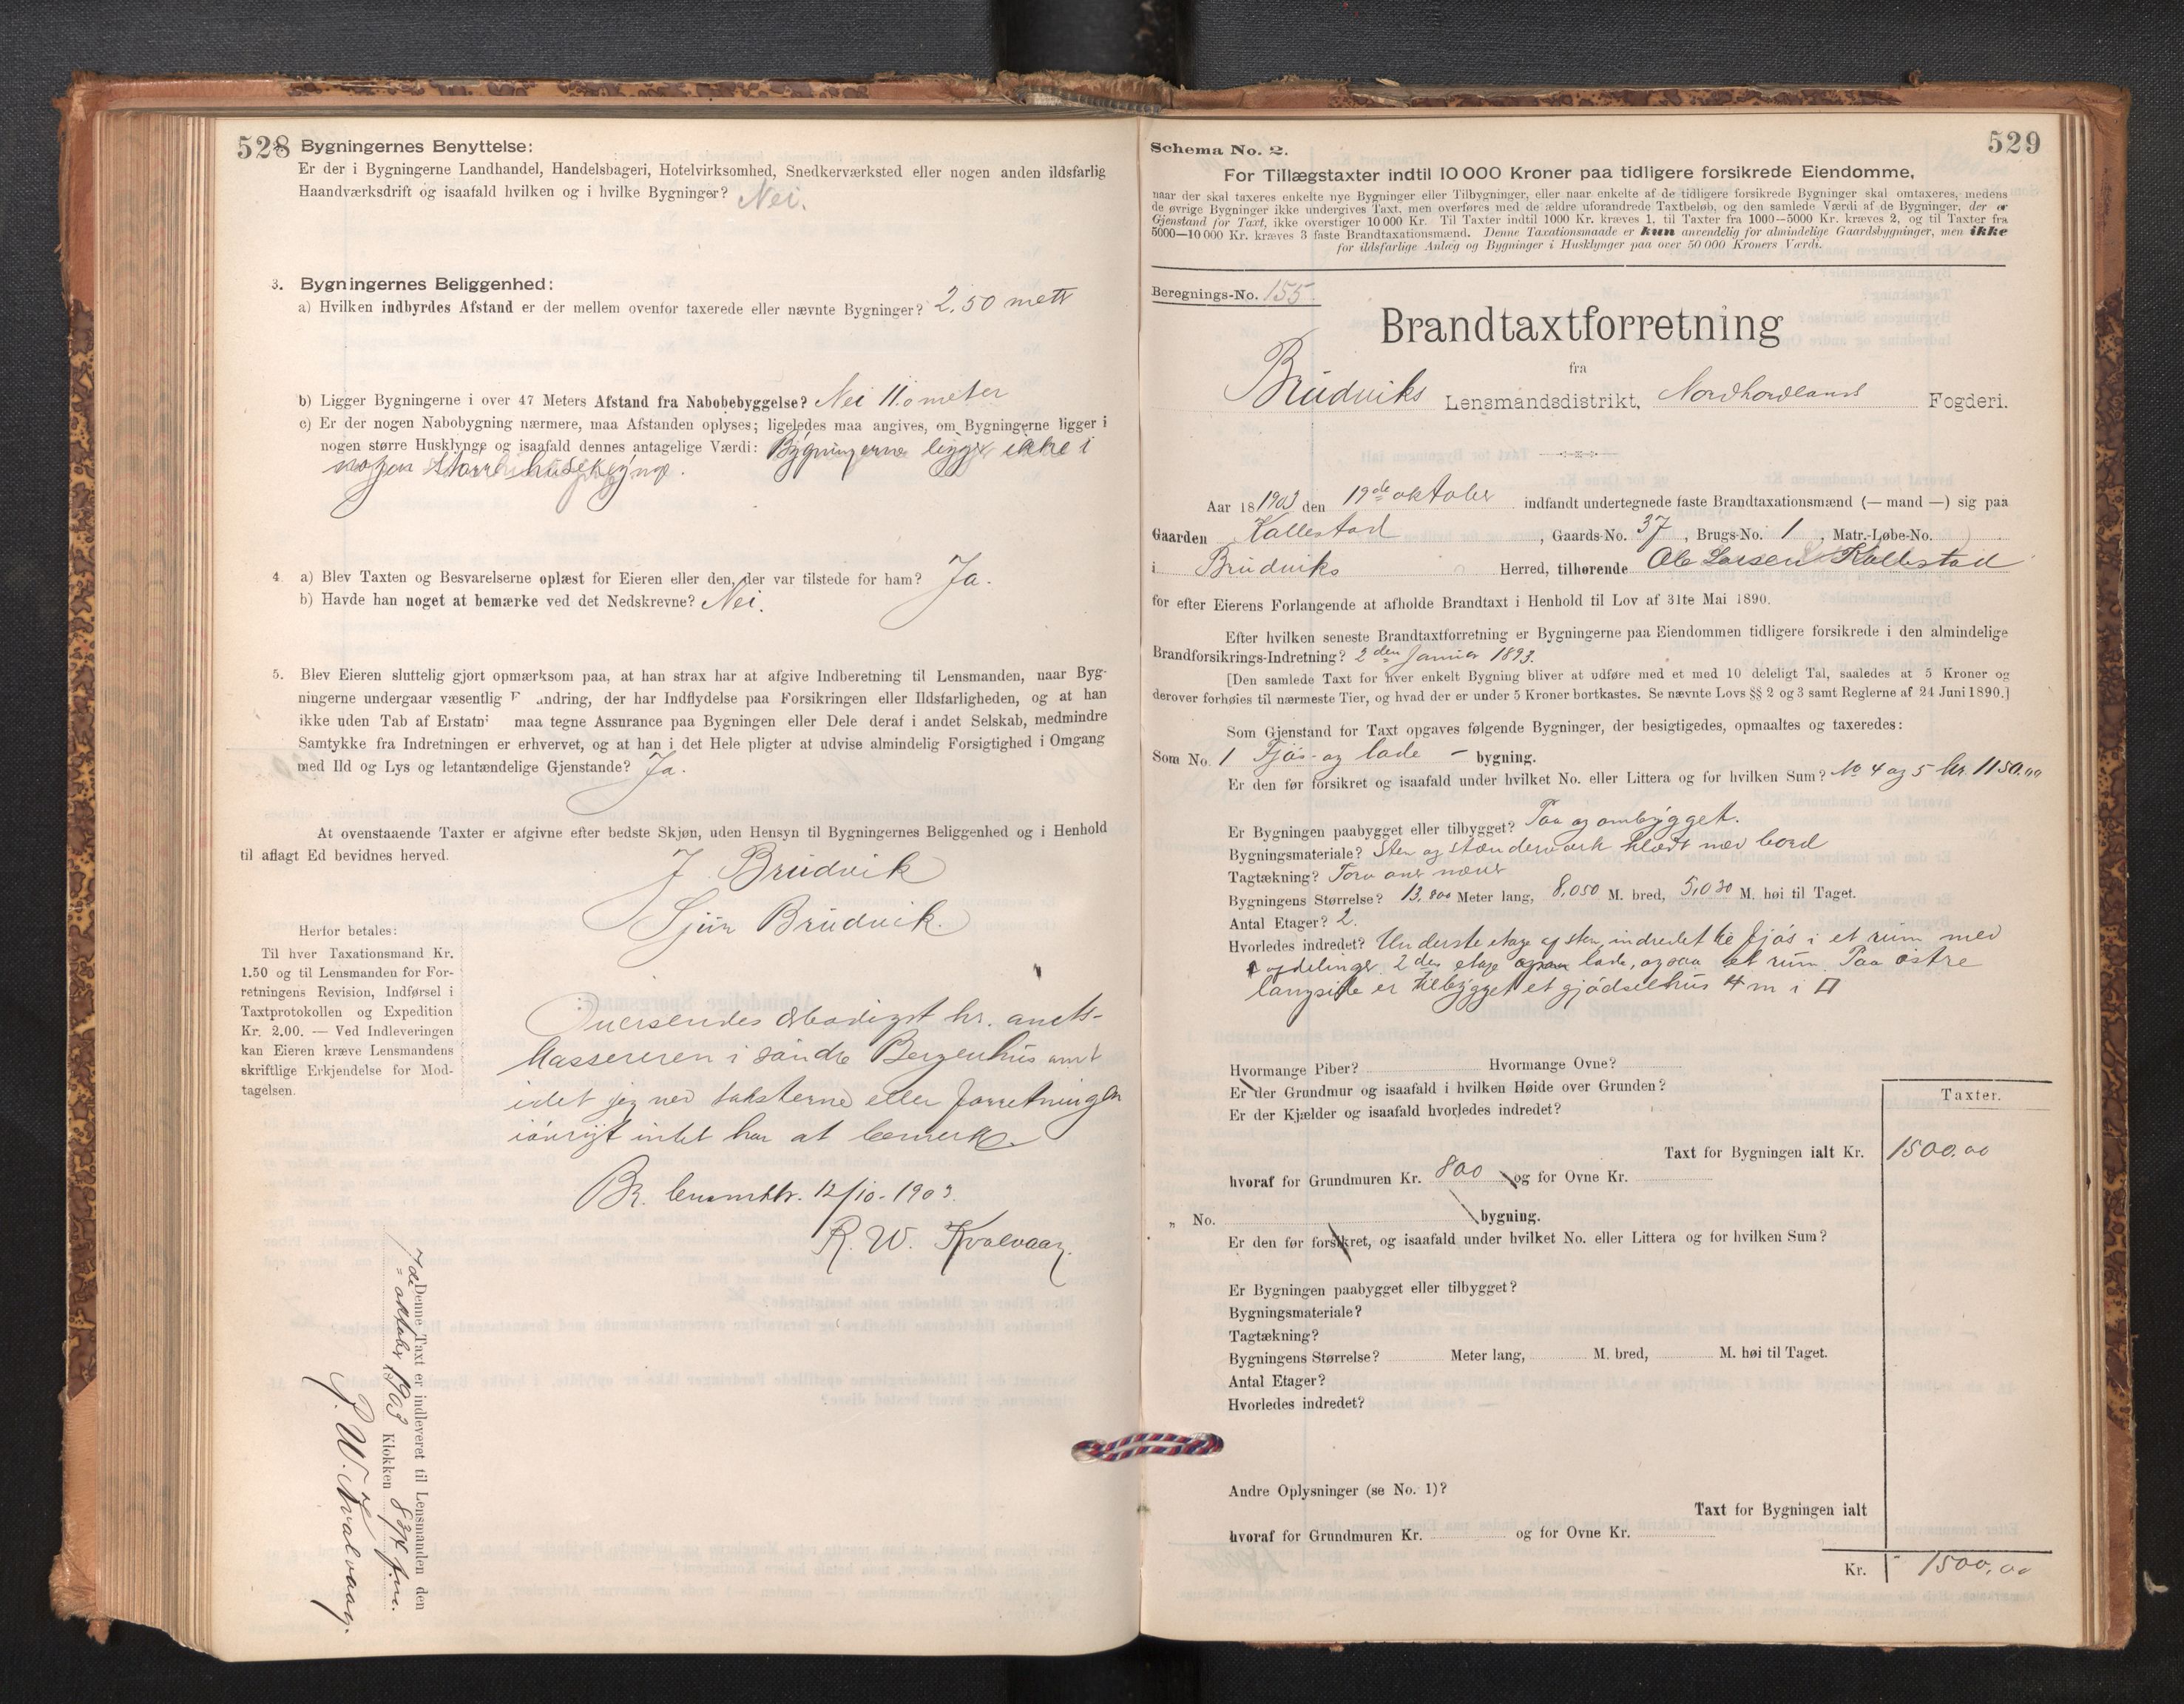 528
Bygningernes Benyttelse:
Er der i Bygningerne Landhandel, Handelsbageri, Hotelvirksomhed, Snedkerværksted eller nogen anden ildsfarlig
Haandværksdrift og isaafald hvilken og i hvilke Bygninger? Nei.
3. Bygningernes Beliggenhed:
a) Hvilken indbyrdes Afstand er der mellem ovenfor taxerede eller nævnte Bygninger? 2,50 metr
b) Ligger Bygningerne i over 47 Meters Afstand fra Nabobebyggelse? Nei 11.0 meter
c) Er der nogen Nabobygning nærmere, maa Afstanden oplyses; ligeledes maa angives, om Bygningerne ligger i
nogen større Husklynge og isaafald dennes antagelige Værdi: Bygningerne ligger ikke i
nogen større husklynge.
4. a) Blev Taxten og Besvarelserne oplæst for Eieren eller den, der var tilstede for ham? Ja.
b) Havde han noget at bemærke ved det Nedskrevne? Nei.
5. Blev Eieren sluttelig gjort opmærksom paa, at han strax har at afgive Indberetning til Lensmanden, naar Byg-
ningerne undergaar væsentlig F andring, der har Indflydelse paa Forsikringen eller Ildsfarligheden, og at han
ikke uden Tab af Erstatn maa tegne Assurance paa Bygningen eller Dele deraf i andet Selskab, medmindre
Samtykke fra Indretningen er erhvervet, og at han i det Hele pligter at udvise almindelig Forsigtighed i Omgang
med Ild og Lys og letantændelige Gjenstande? Ja.
At ovenstaaende Taxter er afgivne efter bedste Skjøn, uden Hensyn til Bygningernes Beliggenhed og i Henhold
til aflagt Ed bevidnes herved.
J Brudvik
Sjur Brudvik.
Herfor betales:
Til hver Taxationsmand Kr.
1.50 og til Lensmanden for For-
retningens Revision, Indførsel i
Taxtprotokollen og Expedition
Kr. 2.00. — Ved Indleveringen
kan Eieren kræve Lensmandens
skriftlige Erkjendelse for Mod-
tagelsen.
Oversendes ærbødigst hr. amts-
kassereren i søndre Bergenhus amt
idet jeg ved taksterne eller forretningen
iøvrigt intet har at bemerke.
Br. lensmktr. 12/10-1903.
R. W. Kvalvaag.
Denne Taxt er indleveret til Lensmanden den
7de oktober 1903 Klokken 8
R. W. Kvalvaag.
529
Schema No. 2.
For Tillægstaxter indtil 10 000 Kroner paa tidligere forsikrede Eiendomme,
naar der skal taxeres enkelte nye Bygninger eller Tilbygninger, eller naar enkelte af de tidligere forsikrede Bygninger skal omtaxeres, medens
de øvrige Bygninger ikke undergives Taxt, men overføres med de ældre uforandrede Taxtbeløb, og den samlede Værdi af de Bygninger, der er
Gjenstand for Taxt, ikke overstiger 10 000 Kr. Til Taxter indtil 1000 Kr. kræves 1, til Taxter fra 1000—5000 Kr. kræves 2, og til Taxter fra
5000—10 000 Kr. kræves 3 faste Brandtaxationsmænd. Denne Taxationsmaade er kun anvendelig for almindelige Gaardsbygninger, men ikke
for ildsfarlige Anlæg og Bygninger i Husklynger paa over 50 000 Kroners Værdi.
Beregnings-No. 155.
Brandtaxtforretning
fra
Brudviks Lensmandsdistrikt, Nordhordlands Fogderi.
Aar 18 1903 den 19de oktober indfandt undertegnede faste Brandtaxationsmænd (— mand —) sig paa
Gaarden Kallestad, Gaards-No. 37, Brugs-No. 1, Matr.-Løbe-No.
i Brudviks Herred, tilhørende Ole Larsen Kallestad
for efter Eierens Forlangende at afholde Brandtaxt i Henhold til Lov af 31te Mai 1890.
Efter hvilken seneste Brandtaxtforretning er Bygningerne paa Eiendommen tidligere forsikrede i den almindelige
Brandforsikrings-Indretning? 2den Januar 1893.
[Den samlede Taxt for hver enkelt Bygning bliver at udføre med et med 10 deleligt Tal, saaledes at 5 Kroner og
derover forhøies til nærmeste Tier, og hvad der er under 5 Kroner bortkastes. Se nævnte Lovs §§ 2 og 3 samt Reglerne af 24 Juni 1890.]
Som Gjenstand for Taxt opgaves følgende Bygninger, der besigtigedes, opmaaltes og taxeredes:
Som No. 1 Fjøs- og lade - bygning.
Er den før forsikret og isaafald under hvilket No. eller Littera og for hvilken Sum? No 4 og 5 kr. 1150.00
Er Bygningen paabygget eller tilbygget? Paa og ombygget.
Bygningsmateriale? Sten og stænderverk klædt med bord
Tagtækning? Torv over næver
Bygningens Størrelse? 13,800 Meter lang, 8,050 M. bred, 5,030 M. høi til Taget.
Antal Etager? 2.
Hvorledes indredet? Underste etage af sten, indredet til fjøs i et rum med
afdelinger 2den etage lade, ogsaa et rum. Paa østre
langside er tilbygget et gjødselhus 4 m i □
Hvormange Piber? Hvormange Ovne?
Er der Grundmur og isaafald i hvilken Høide over Grunden?
Er der Kjælder og isaafald hvorledes indredet?
Taxter.
Taxt for Bygningen ialt Kr. 1500.00
hvoraf for Grundmuren Kr. 800 og for Ovne Kr.
" No. bygning.
Er den før forsikret, og isaafald under hvilket No. eller Littera og for hvilken Sum?
Er Bygningen paabygget eller tilbygget?
Bygningsmateriale?
Tagtækning?
Bygningens Størrelse? Meter lang, M. bred, M. høi til Taget.
Antal Etager?
Hvorledes indredet?
Andre Oplysninger (se No. 1)?
Taxt for Bygningen ialt
hvoraf for Grundmuren Kr. og for Ovne Kr.
Kr. 1500,00